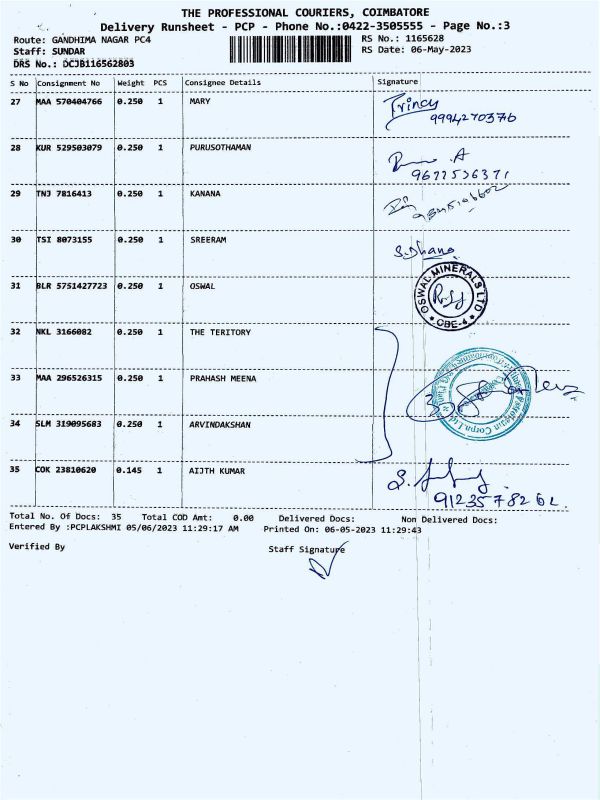 THE PROFESSIONAL COURIERS, COIMBATORE
Delivery Runsheet - PCP - Phone No.:0422-3505555 - Page No.:3
Route: GANDHIMA NAGAR PC4 RS No.: 1165628
Staff: SUNDAR RS Date: 06-May-2023
DRS No.: DCJB116562803
S No Consignment No Weight PCS Consignee Details Signature
27 MAA 570404766 0.250 1 MARY
9994270376
28 KUR 529503079 0.250 1 PURUSOTHAMAN
29 TNJ 7816413 0.250 1 KANANA
30 TSI 8073155 0.250 1 SREERAM S.Dhana
31 BLR 5751427723 0.250 1 OSWAL OSWAL MINERALS LTD
CBE-4
32 NKL 3166082 0.250 1 THE TERITORY
33 MAA 296526315 0.250 1 PRAHASH MEENA
34 SLM 319095683 0.250 1 ARVINDAKSHAN
35 COK 23810620 0.145 1 AIJTH KUMAR
Total No. Of Docs: 35 Total COD Amt: 0.00 Delivered Docs: Non Delivered Docs:
Entered By :PCPLAKSHMI 05/06/2023 11:29:17 AM Printed On: 06-05-2023 11:29:43
Verified By Staff Signature